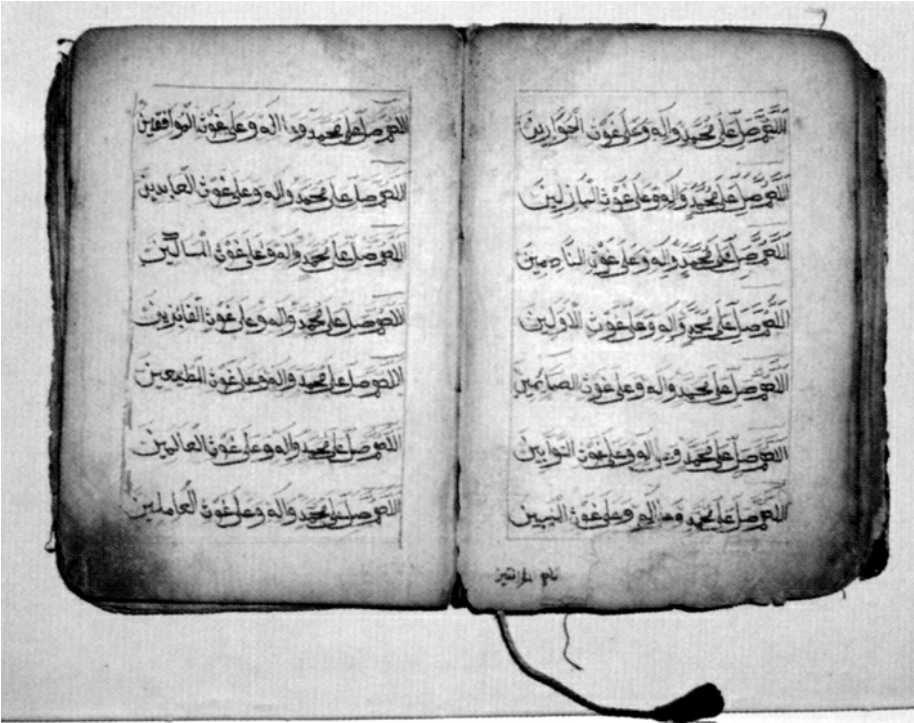 اللهم صل على محمد واله وعلى غوث الحوارين
اللهم صل على محمد واله وعلى غوث
اللهم صل على محمد واله وعلى غوث
اللهم صل على محمد واله وعلى غوث الاولين
اللهم صل على محمد واله وعلى غوث الصائمين
اللهم صل على محمد وعلى اله وعلى غوث التوابين
اللهم صل على محمد وعلى اله وعلى غوث
اللهم صل على محمد وعلى اله وعلى غوث
اللهم صل على محمد واله وعلى غوث العابدين
اللهم صل على محمد واله وعلى غوث السالكين
اللهم صل على محمد واله وعلى غوث الفائزين
اللهم صل على محمد واله وعلى غوث
اللهم صل على محمد واله وعلى غوث العالمين
اللهم صل على محمد واله وعلى غوث العاملين